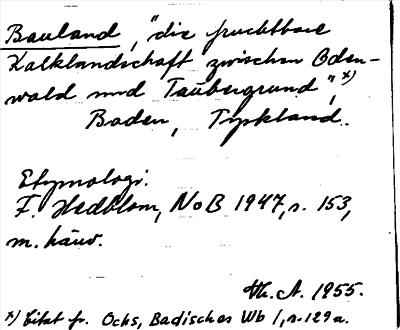 Bauland, "die fruchtbare
Kalklandschaft zwischen Oden-
wald und Taubergrund", x)
Baden, Tyskland.
Etymologi.
F. Hedblom, NoB 1947, s. 153,
m. hänv.
Th. A. 1955.
x) Citat fr. Ochs, Badisches Wb 1, s. 129 a.